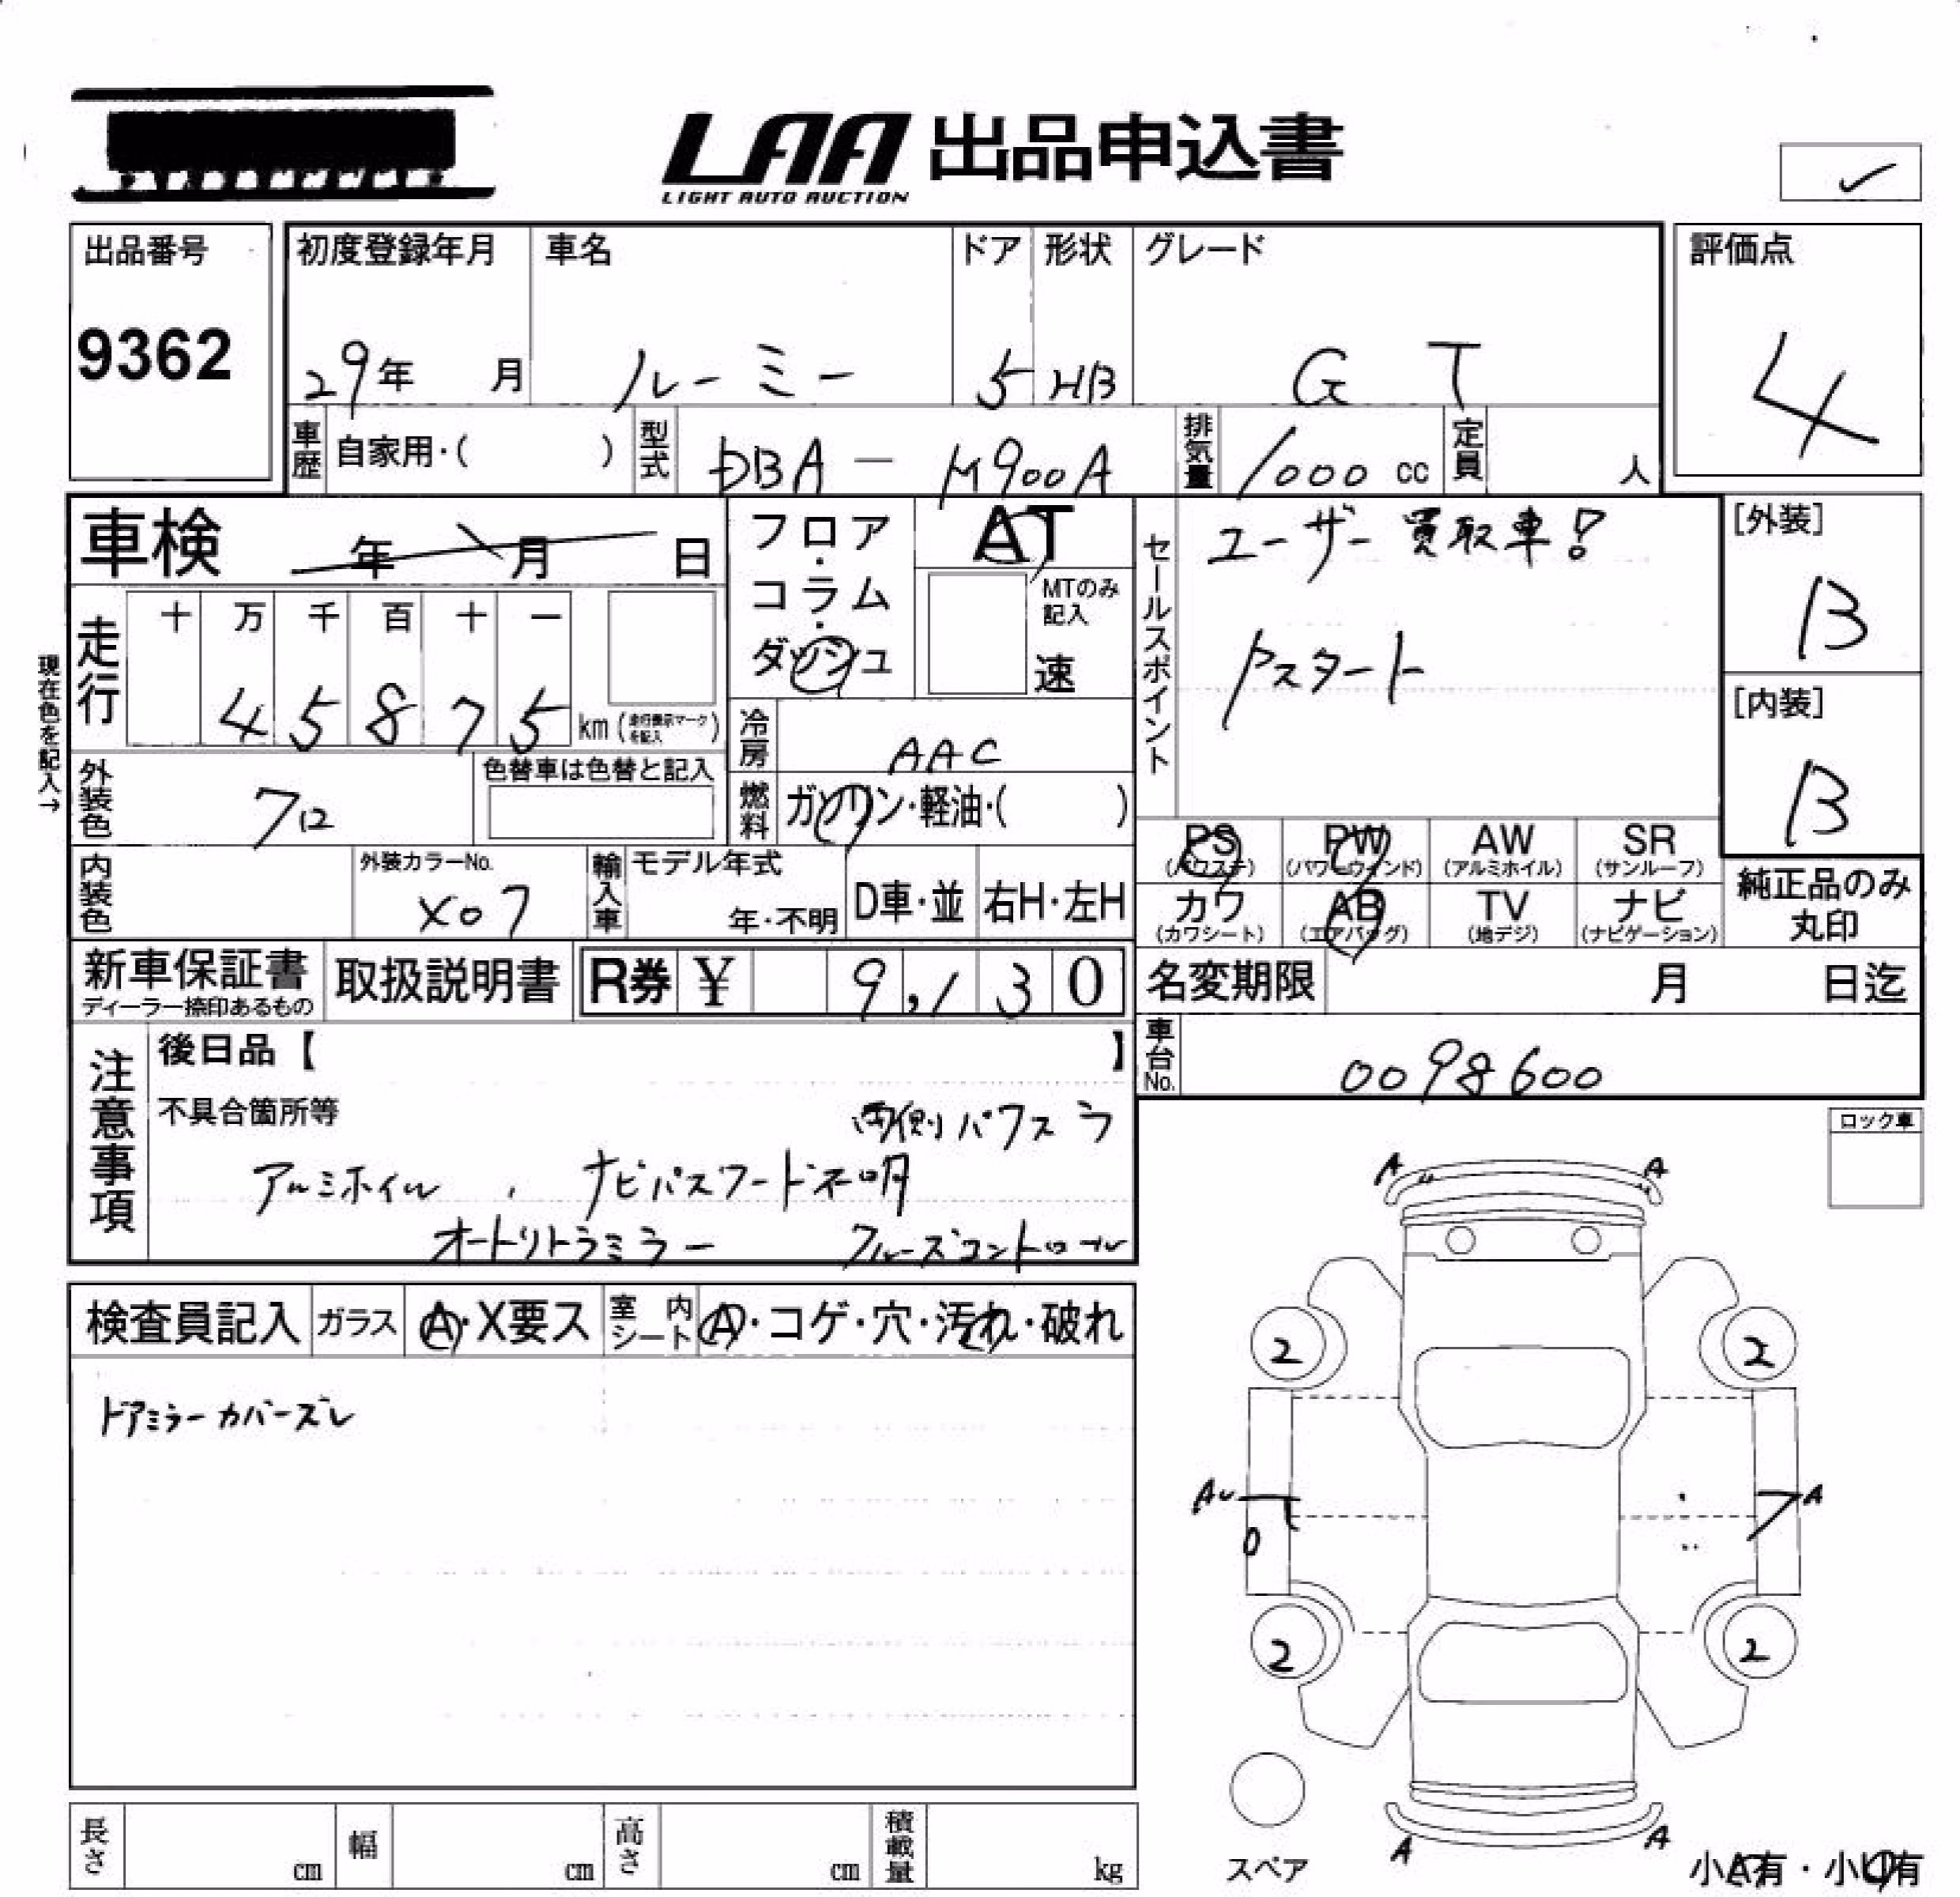 LAA 出品申込書
LIGHT AUTO AUCTION
出品番号
9362
初度登録年月
29年 月
車名
ルーミー
ドア
5
形状
HB
グレード
G T
評価点
4
車歴 自家用・( )
型式 DBA - M900A
排気量 1000 cc
定員 人
車検 年 月 日
フロア・コラム・ダッシュ
AT
MTのみ記入
速
セールスポイント
ユーザー買取車!
Pスタート
[外装]
B
[内装]
B
現在色を記入→
走行
十 万 千 百 十 一
4 5 8 7 5 km (走行表示マークを記入)
冷房 AAC
燃料 ガソリン・軽油・( )
外装色 712
色替車は色替と記入
内装色
外装カラーNo.
X07
輸入車
モデル年式
年・不明
D車・並
右H・左H
PS (パワステ)
PW (パワーウィンド)
AW (アルミホイル)
SR (サンルーフ)
カワ (カワシート)
AB (エアバッグ)
TV (地デジ)
ナビ (ナビゲーション)
純正品のみ
丸印
新車保証書
ディーラー捺印あるもの
取扱説明書
R券 ¥ 9,130
名変期限 月 日迄
車台No. 0098600
注意事項
後日品【 】
不具合箇所等
両側パワスラ
アルミホイル , ナビパスワード不明
オートリトラミラー クルーズコントロール
ロック車
検査員記入
ガラス A・X要ス
室内シート A・コゲ・穴・汚れ・破れ
ドアミラーカバーズレ
A A
2 2
AU A
2 2
A A
スペア
小A有・小U有
長さ cm
幅 cm
高さ cm
積載量 kg